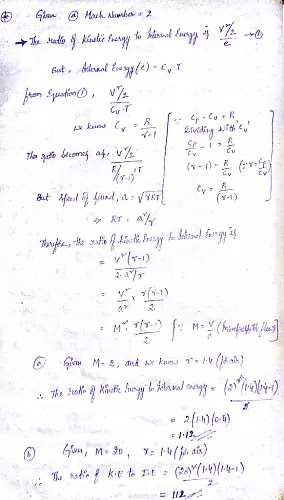 ④ Given ⓐ Mach Number = 2
→ The ratio of Kinetic Energy to Internal Energy is V²/2 / e → ①
But, Internal Energy (e) = Cv·T
from Equation ①, V²/2 / Cv·T
we know Cv = R / r-1
The ratio becomes as, V²/2 / R/(r-1)·T
[∵ Cp - Cv = R,
Dividing with 'Cv'
Cp/Cv - 1 = R/Cv
(r-1) = R/Cv (∵ r = Cp/Cv)
Cv = R/(r-1)]
But Speed of Sound, a = √rRT
⇒ RT = a²/r
Therefore, the ratio of Kinetic Energy to Internal Energy is
= V²(r-1) / 2·a²/r
= V²/a² × r(r-1)/2
= M² · r(r-1)/2 [∵ M = V/a
ⓐ Given M=2, and we know r = 1.4 (for air)
∴ The ratio of Kinetic Energy to Internal energy = (2)²(1.4)(1.4-1) / 2
= 2(1.4)(0.4)
= 1.12
ⓑ Given, M = 20, r = 1.4 (for air)
∴ The ratio of K.E to I.E = (20)²(1.4)(1.4-1) / 2
= 112